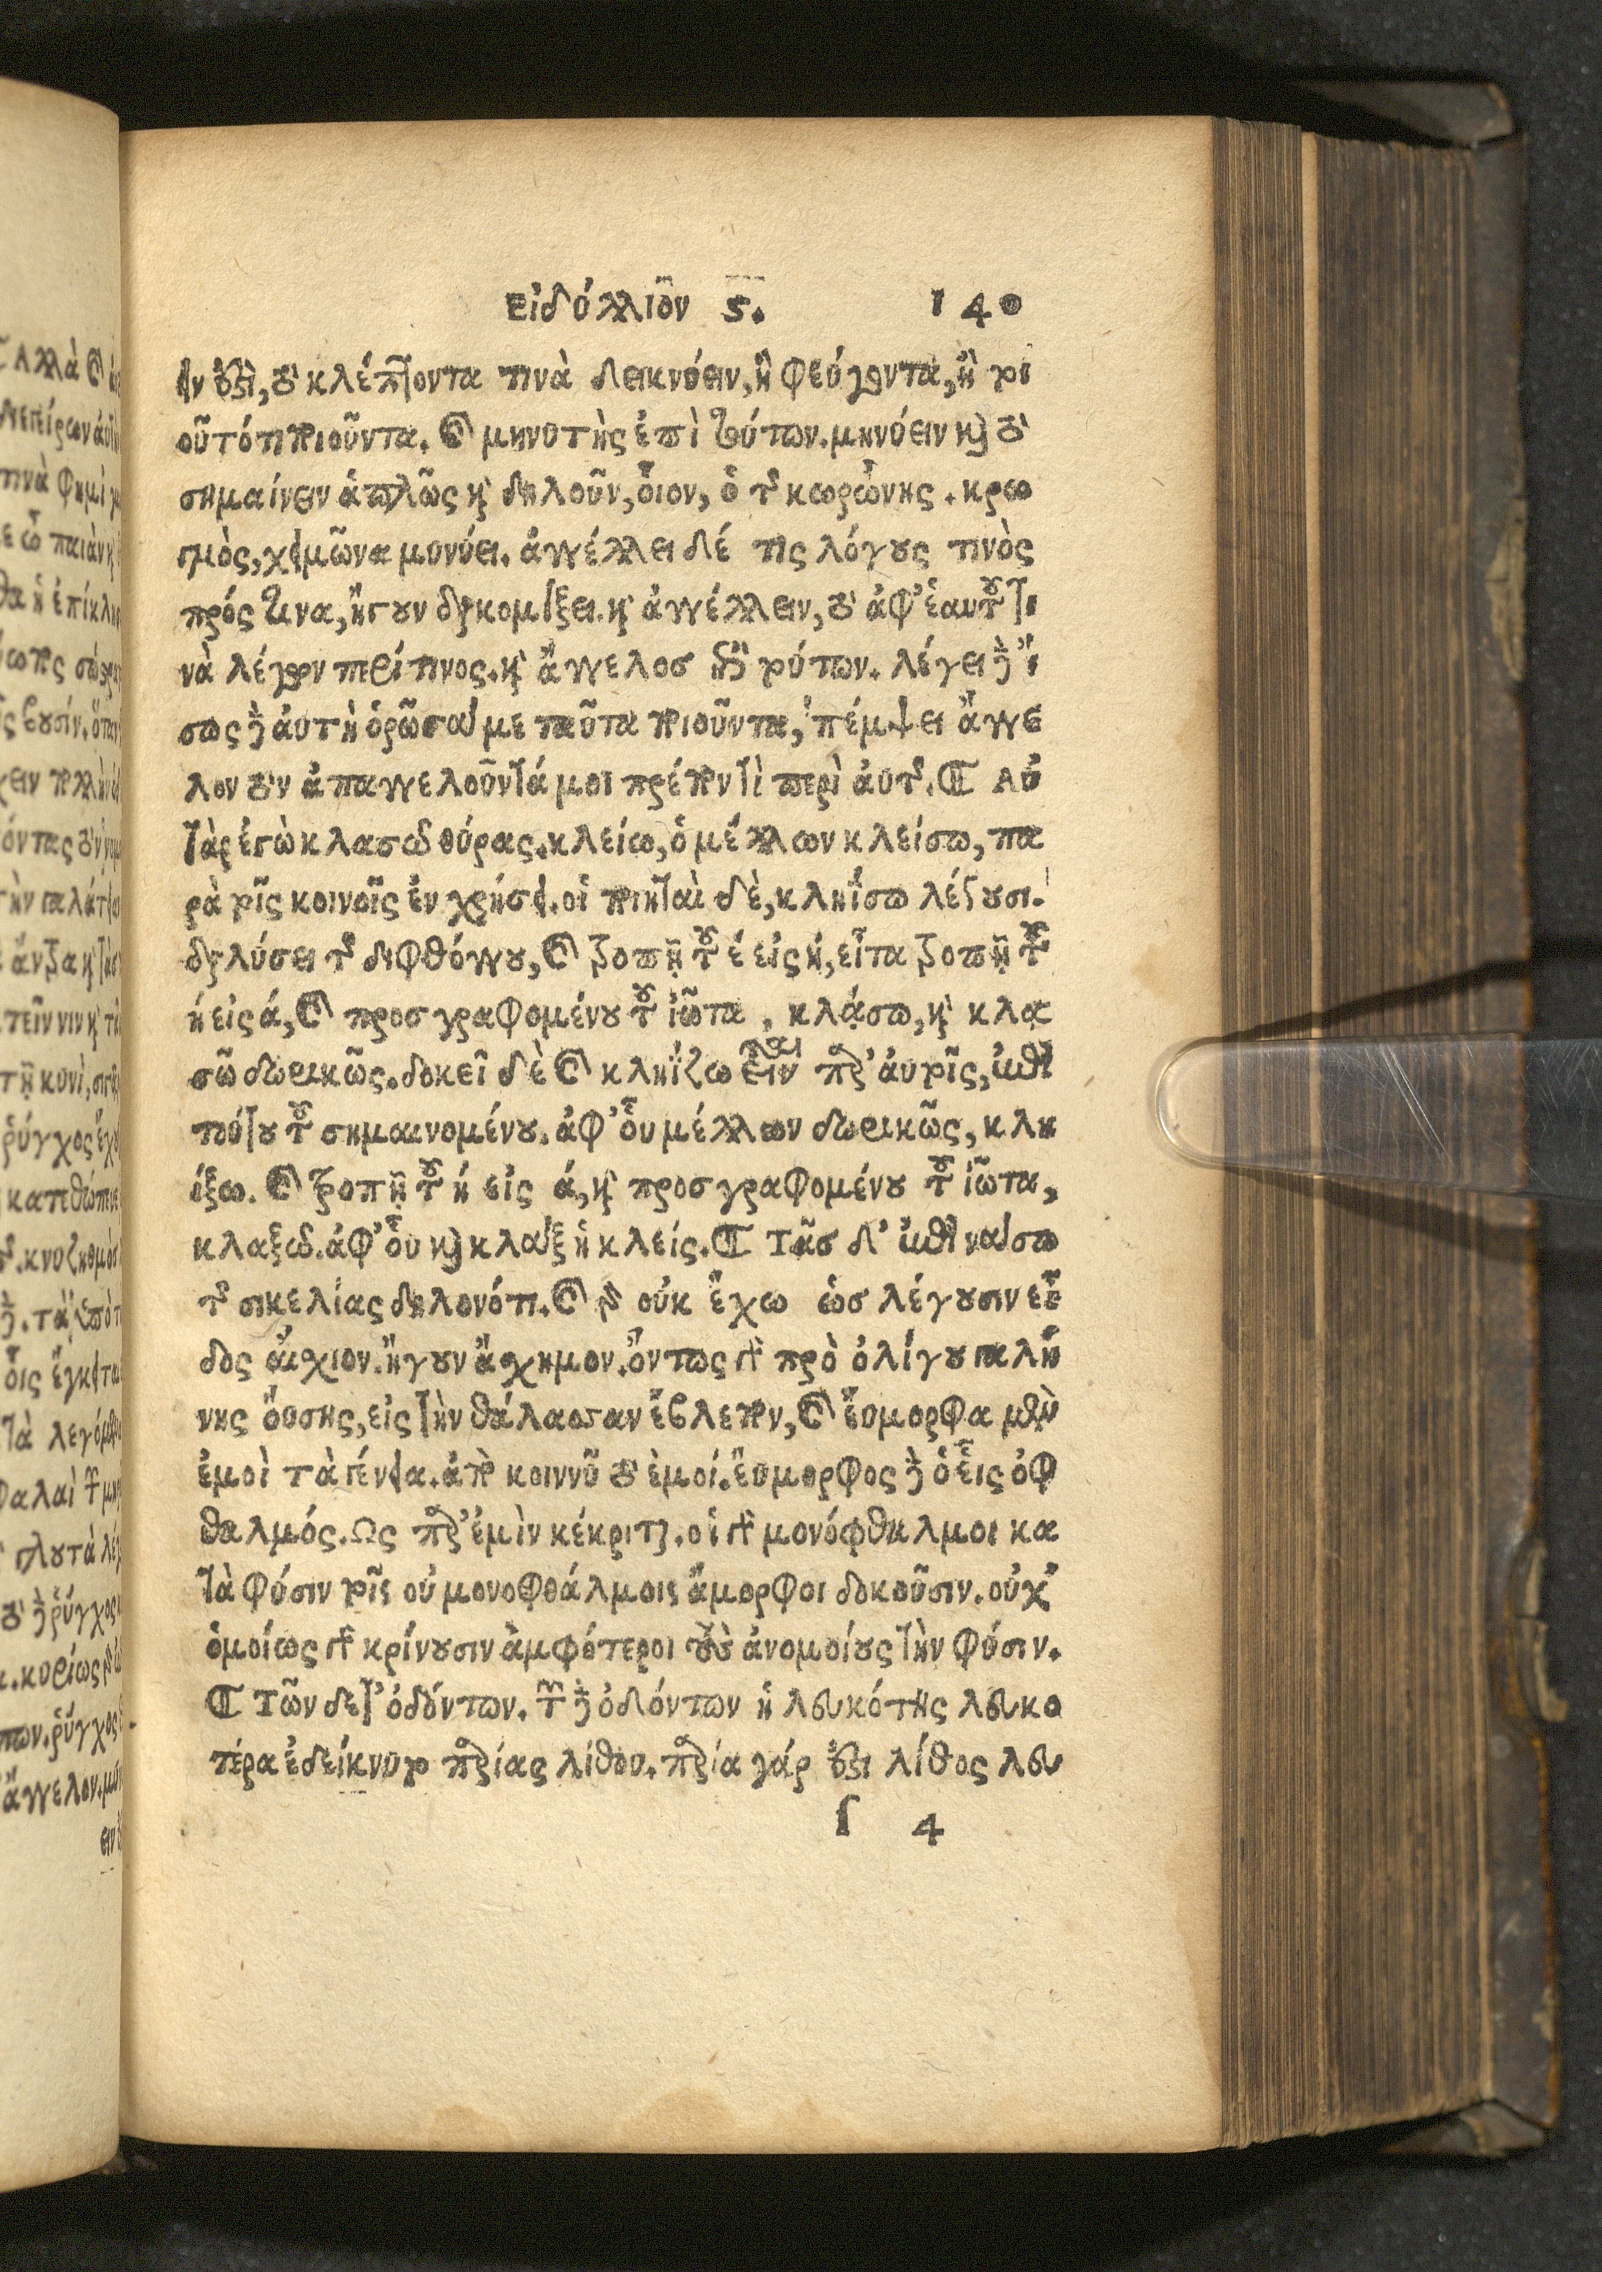 Εἰδύλλιον ς. 140
ιν ὅτι, τὸ κλέπτοντα τινὰ δεικνύειν, ἢ φεύγοντα, ἢ τοι
οῦτό τι ποιοῦντα. καὶ μηνυτὴς ἐπὶ τούτων. μηνύειν καὶ τὸ
σημαίνειν ἁπλῶς καὶ δηλοῦν, οἷον, ὁ τῆς κωρώνης. κρω
γμὸς, χειμῶνα μυνύει. ἀγγέλλει δέ τις λόγους τινὸς
πρός τινα, ἤγουν διακομίξει. καὶ ἀγγέλλειν, τὸ ἀφ' ἑαυτοῦ τι
νὰ λέγειν περί τινος. καὶ ἄγγελος διὰ τούτων. λέγει δὲ ἴ
σως δὲ ἀυτὴ ὁρῶσαί με ταῦτα ποιοῦντα, πέμψει ἄγγε
λον τὸν ἀπαγγελοῦντά μοι πρέπον τὶ περὶ ἀυτῆς. ¶ Αὐ
τὰρ ἐγὼ κλασῶ θύρας. κλείω, ὁ μέλλων κλείσω, πα
ρὰ τοῖς κοινοῖς ἐν χρήσει. οἱ ποιηταὶ δὲ, κληΐσω λέγουσι.
διαλύσει τῆς διφθόγγου, καὶ τροπῇ τοῦ έ εἰς ή, εἶτα τροπῇ τοῦ
ή εἰς ά, καὶ προσγραφομένου τοῦ ἰῶτα, κλᾴσω, καὶ κλᾳ
σῶ δωρικῶς. δοκεῖ δὲ καὶ κληΐζω εἶναι παρ' ἀυτοῖς, ἐπὶ
τούτου τοῦ σημαινομένου. ἀφ' οὗ μέλλων δωρικῶς, κλη
ίξω. καὶ τροπῇ τοῦ ή εἰς ά, καὶ προσγραφομένου τοῦ ἰῶτα,
κλαξῶ. ἀφ' οὗ καὶ κλαὶξ ἡ κλείς. ¶ Τᾶσ δ' ἐπὶ ναίσω
τῆς σικελίας δηλονότι. καὶ γὰρ οὐκ ἔχω ὡσ λέγουσιν εἶ
δος αἴσχιον. ἤγουν ἄσχημον. ὄντως γὰρ πρὸ ὀλίγου γαλή
νης ὄυσης, εἰς τὴν θάλασσαν ἔβλεπον, καὶ ἔυμορφα μὲν
ἐμοὶ τὰ γένεια. ἀπὸ κοινοῦ τὸ ἐμοί. ἔυμορφος δὲ ὁ εἷς ὀφ
θαλμός. Ως παρ' ἐμὶν κέκριται. οἱ γὰρ μονόφθαλμοι κα
τὰ φύσιν τοῖς οὐ μονοφθάλμοις ἄμορφοι δοκοῦσιν. οὐχ
ὁμοίως γὰρ κρίνουσιν ἀμφότεροι τοὺς ἀνομοίους τὴν φύσιν.
¶ Τῶν δέ τ' ὀδόντων. τῶν δὲ ὀδόντων ἡ λευκότης λευκο
τέρα ἐδείκνυτο παρίας λίθου. παρία γάρ ἐστι λίθος λευ
ſ 4